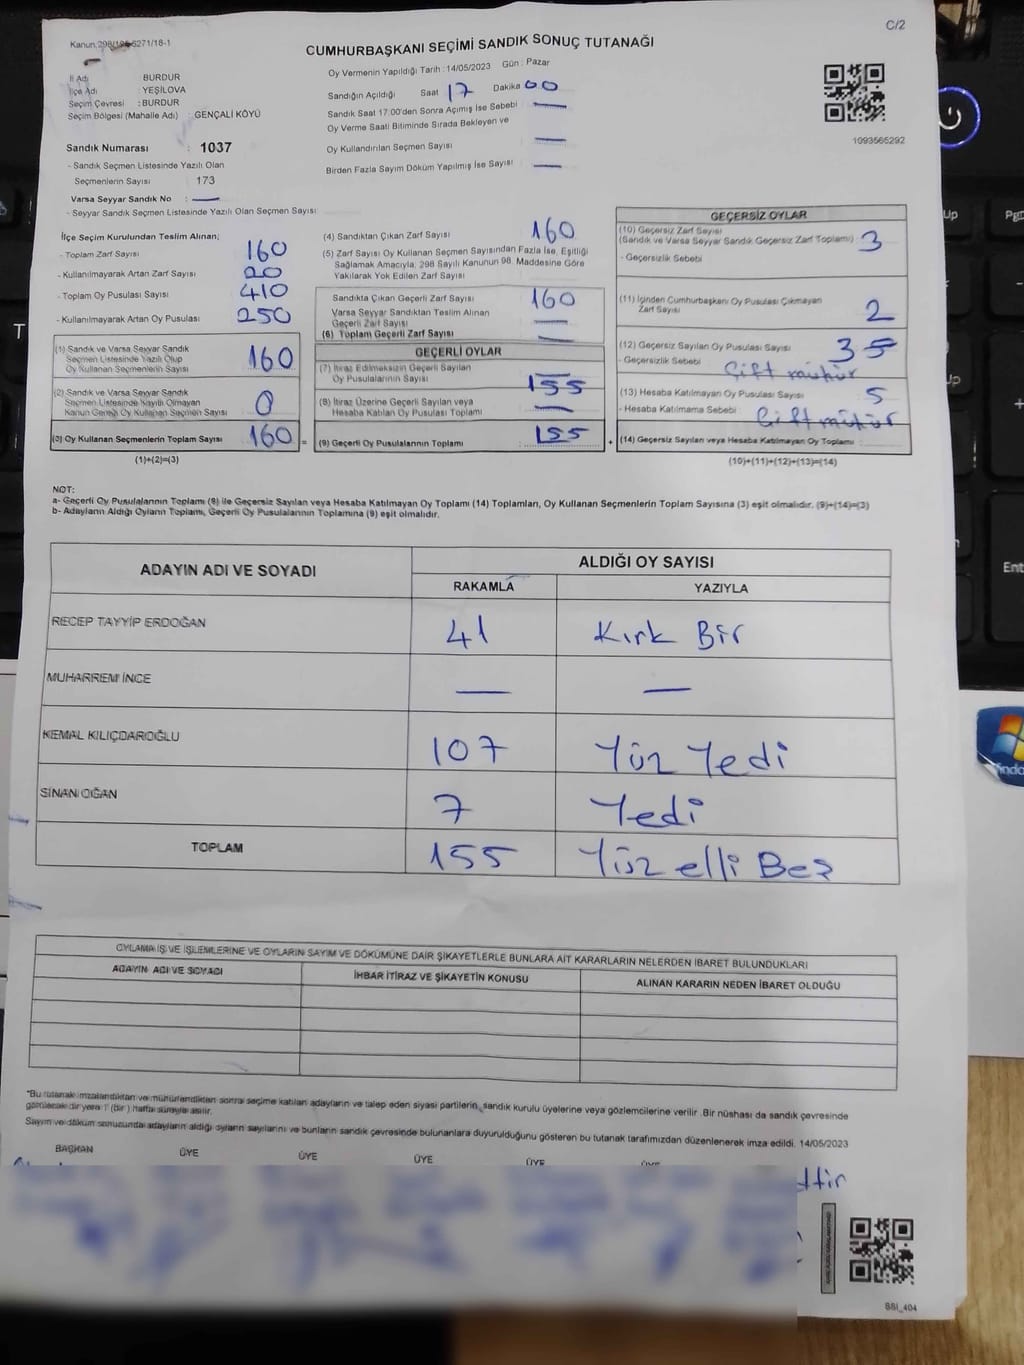 C/2
Kanun:298/195-6271/18-1
CUMHURBAŞKANI SEÇİMİ SANDIK SONUÇ TUTANAĞI
İl Adı : BURDUR
İlçe Adı : YEŞİLOVA
Seçim Çevresi : BURDUR
Seçim Bölgesi (Mahalle Adı) GENÇALİ KÖYÜ
Sandık Numarası : 1037
- Sandık Seçmen Listesinde Yazılı Olan
Seçmenlerin Sayısı : 173
Varsa Seyyar Sandık No : —
- Seyyar Sandık Seçmen Listesinde Yazılı Olan Seçmen Sayısı:
Oy Vermenin Yapıldığı Tarih : 14/05/2023 Gün : Pazar
Sandığın Açıldığı Saat 17 Dakika 00
Sandık Saat 17:00'den Sonra Açmış İse Sebebi —
Oy Verme Saati Bitiminde Sırada Bekleyen ve
Oy Kullandırılan Seçmen Sayısı —
Birden Fazla Sayım Döküm Yapılmış İse Sayısı —
1093565292
İlçe Seçim Kurulundan Teslim Alınan;
- Toplam Zarf Sayısı : 160
- Kullanılmayarak Artan Zarf Sayısı : 20
- Toplam Oy Pusulası Sayısı : 410
- Kullanılmayarak Artan Oy Pusulası : 250
(1) Sandık ve Varsa Seyyar Sandık
Seçmen Listesinde Yazılı Olup
Oy Kullanan Seçmenlerin Sayısı : 160
(2) Sandık ve Varsa Seyyar Sandık
Seçmen Listesinde Kayıtlı Olmayan
Kanun Gereği Oy Kullanan Seçmen Sayısı : 0
(3) Oy Kullanan Seçmenlerin Toplam Sayısı : 160 =
(1)+(2)=(3)
(4) Sandıktan Çıkan Zarf Sayısı : 160
(5) Zarf Sayısı Oy Kullanan Seçmen Sayısından Fazla İse, Eşitliği
Sağlamak Amacıyla; 298 Sayılı Kanunun 98. Maddesine Göre
Yakılarak Yok Edilen Zarf Sayısı
Sandıkta Çıkan Geçerli Zarf Sayısı : 160
Varsa Seyyar Sandıktan Teslim Alınan
Geçerli Zarf Sayısı : —
(6) Toplam Geçerli Zarf Sayısı : —
GEÇERLİ OYLAR
(7) İtiraz Edilmeksizin Geçerli Sayılan
Oy Pusulalarının Sayısı : 155
(8) İtiraz Üzerine Geçerli Sayılan veya
Hesaba Katılan Oy Pusulası Toplamı : —
(9) Geçerli Oy Pusulalarının Toplamı : 155 +
GEÇERSİZ OYLAR
(10) Geçersiz Zarf Sayısı
(Sandık ve Varsa Seyyar Sandık Geçersiz Zarf Toplamı) : 3
- Geçersizlik Sebebi
(11) İçinden Cumhurbaşkanı Oy Pusulası Çıkmayan
Zarf Sayısı : 2
(12) Geçersiz Sayılan Oy Pusulası Sayısı : 35
- Geçersizlik Sebebi Çift mühür
(13) Hesaba Katılmayan Oy Pusulası Sayısı : 5
- Hesaba Katılmama Sebebi Çift mühür
(14) Geçersiz Sayılan veya Hesaba Katılmayan Oy Toplamı :
(10)+(11)+(12)+(13)=(14)
NOT:
a- Geçerli Oy Pusulalarının Toplamı (9) ile Geçersiz Sayılan veya Hesaba Katılmayan Oy Toplamı (14) Toplamları, Oy Kullanan Seçmenlerin Toplam Sayısına (3) eşit olmalıdır. (9)+(14)=(3)
b- Adayların Aldığı Oyların Toplamı, Geçerli Oy Pusulalarının Toplamına (9) eşit olmalıdır.
ADAYIN ADI VE SOYADI ALDIĞI OY SAYISI
RAKAMLA YAZIYLA
RECEP TAYYİP ERDOĞAN 41 Kırk Bir
MUHARREM İNCE — —
KEMAL KILIÇDAROĞLU 107 Yüz Yedi
SİNAN OĞAN 7 Yedi
TOPLAM 155 Yüz elli Beş
OYLAMA İŞ VE İŞLEMLERİNE VE OYLARIN SAYIM VE DÖKÜMÜNE DAİR ŞİKAYETLERLE BUNLARA AİT KARARLARIN NELERDEN İBARET BULUNDUKLARI
ADAYIN ADI VE SOYADI İHBAR İTİRAZ VE ŞİKAYETİN KONUSU ALINAN KARARIN NEDEN İBARET OLDUĞU
*Bu tutanak imzalandıktan ve mühürlendikten sonra seçime katılan adayların ve talep eden siyasi partilerin, sandık kurulu üyelerine veya gözlemcilerine verilir. Bir nüshası da sandık çevresinde
görülecek bir yere 1 (bir) hafta süreyle asılır.
Sayım ve döküm sonucunda adayların aldığı oyların sayılarını ve bunların sandık çevresinde bulunanlara duyurulduğunu gösteren bu tutanak tarafımızdan düzenlenerek imza edildi. 14/05/2023
BAŞKAN ÜYE ÜYE ÜYE ÜYE ÜYE
SSI_404